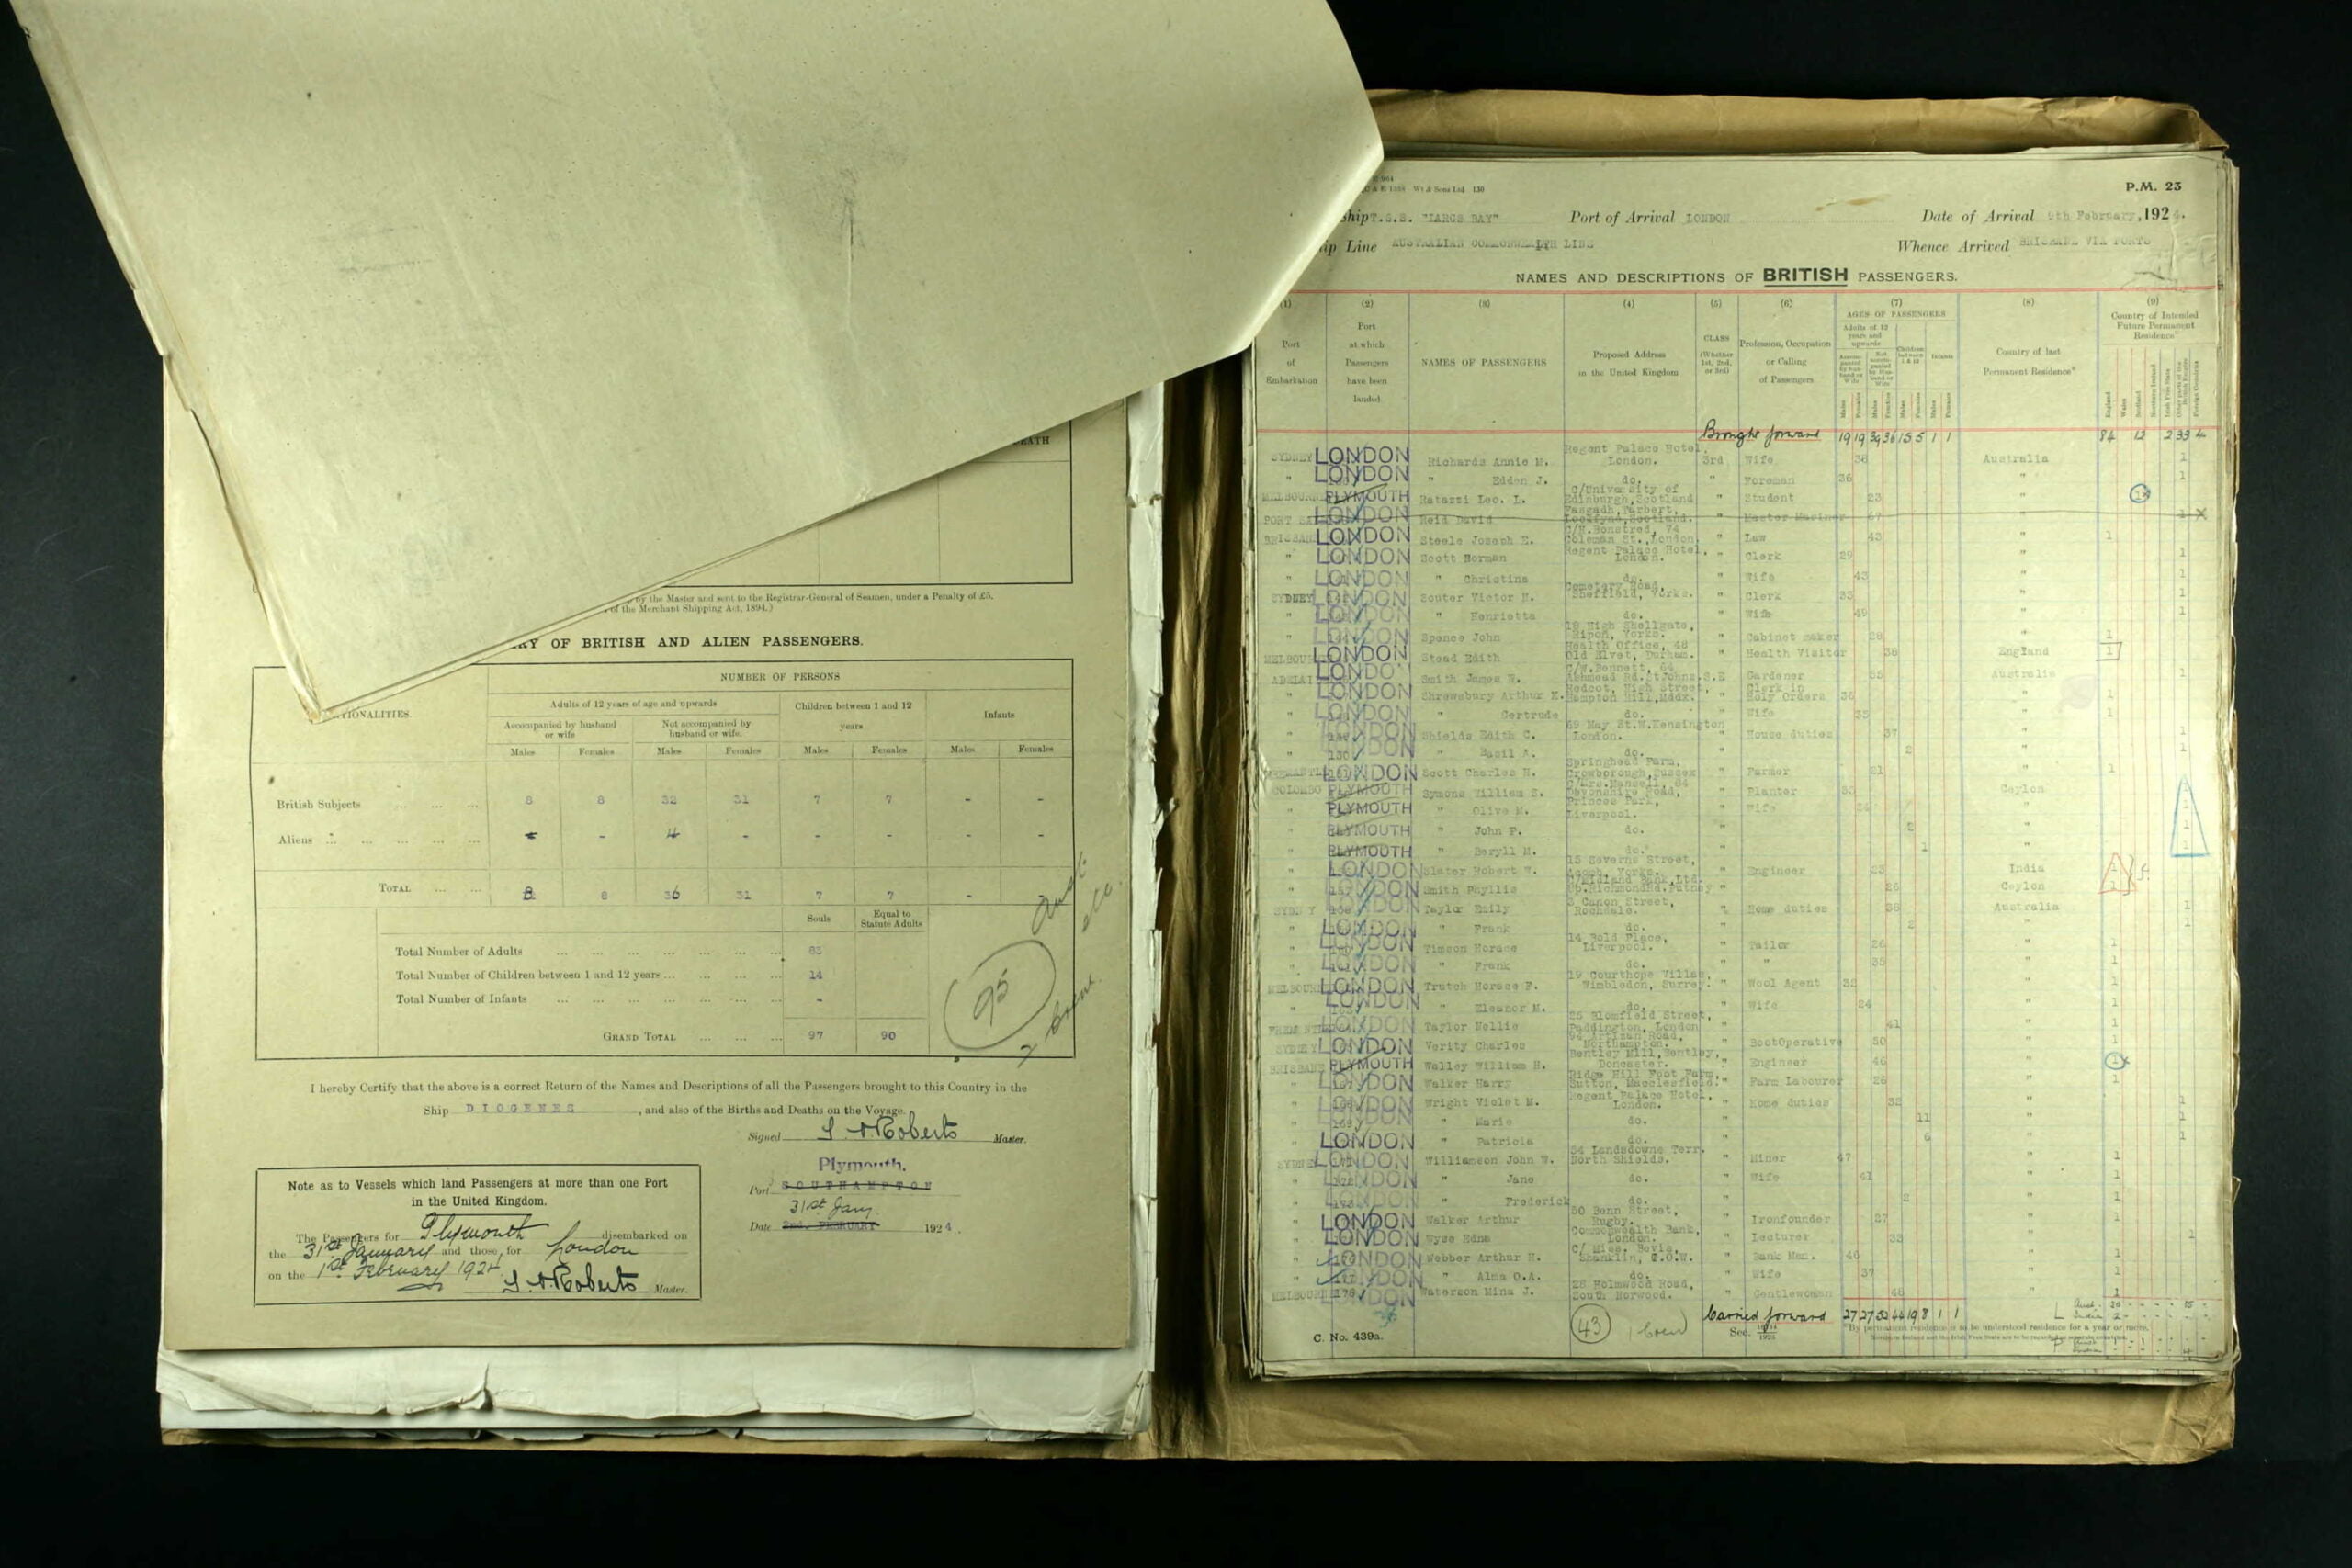 DEATH
by the Master and sent to the Registrar-General of Seamen, under a Penalty of £5.
of the Merchant Shipping Act, 1894.)
RY OF BRITISH AND ALIEN PASSENGERS.
NUMBER OF PERSONS
TIONALITIES.
Adults of 12 years of age and upwards
Children between 1 and 12 years
Infants
Accompanied by husband or wife
Not accompanied by husband or wife.
Males Females Males Females Males Females Males Females
British Subjects ... ... ... 8 8 32 31 7 7 - -
Aliens ... ... ... ... ... - 4 - - - - -
TOTAL ... ... 8 8 36 31 7 7 - -
Souls
Equal to Statute Adults
Total Number of Adults ... ... ... ... ... ... 83
Total Number of Children between 1 and 12 years ... ... ... ... 14
Total Number of Infants ... ... ... ... ... ... -
GRAND TOTAL ... ... ... 97 90
95
I hereby Certify that the above is a correct Return of the Names and Descriptions of all the Passengers brought to this Country in the
Ship DIOGENES, and also of the Births and Deaths on the Voyage.
Signed Roberts Master.
Plymouth.
Port SOUTHAMPTON
31st Jany.
Date 2nd. FEBRUARY 1924.
Note as to Vessels which land Passengers at more than one Port
in the United Kingdom.
The Passengers for Plymouth disembarked on
the 31st January and those for London
on the 1st February 1924
Roberts Master.
P.M. 23
ship T.S.S. "LARGS BAY" Port of Arrival LONDON Date of Arrival 9th February, 1924.
ip Line AUSTRALIAN COMMONWEALTH LINE Whence Arrived BRISBANE VIA PORTS
NAMES AND DESCRIPTIONS OF BRITISH PASSENGERS.
(1) (2) (3) (4) (5) (6) (7) (8) (9)
Port of Embarkation
Port at which Passengers have been landed
NAMES OF PASSENGERS
Proposed Address in the United Kingdom
CLASS (Whether 1st, 2nd, or 3rd)
Profession, Occupation or Calling of Passengers
AGES OF PASSENGERS
Adults of 12 years and upwards
Children between 1 & 12
Infants
Country of last Permanent Residence*
Country of Intended Future Permanent Residence*
Brought forward 19 19 39 36 15 5 1 1 84 12 2 33 4
SYDNEY LONDON Richards Annie M. Regent Palace Hotel, London. 3rd Wife 38 Australia 1
" LONDON " Edden J. do. " Foreman 36 " 1
MELBOURNE PLYMOUTH Ratazzi Leo. L. C/University of Edinburgh, Scotland " Student 23 " 1
LONDON Reid David Scotland. " Master Mariner 57 " 1 X
BRISBANE LONDON Steele Joseph E. Coleman St., London " Law 43 " 1
" LONDON Scott Norman Regent Palace Hotel, London. " Clerk 29 " 1
" LONDON " Christina do. " Wife 43 " 1
SYDNEY LONDON Souter Victor H. Cemetery Road, Sheffield, Yorks. " Clerk 33 " 1
" LONDON " Henrietta do. " Wife 49 " 1
" LONDON Spence John Ripon, Yorks. " Cabinet maker 28 " 1
MELBOURNE LONDON Stead Edith Health Office, 48 Old Elvet, Durham. " Health Visitor 38 England 1
ADELAI LONDON Smith James W. C/W. Bennett, 64 Ashmead Rd. St Johns S.E " Gardener 55 Australia 1
" LONDON Shrewsbury Arthur K. Redcot, High Street, Hampton Hill, Mddx. " Clerk in Holy Orders 36 " 1
" LONDON " Gertrude do. " Wife 35 " 1
" LONDON Shields Edith C. 69 May St. W. Kensington London. " House duties 37 " 1
" LONDON " Basil A. do. " 2 " 1
FREMANTLE LONDON Scott Charles H. Springhead Farm, Crowborough, Sussex " Farmer 21 " 1
COLOMBO PLYMOUTH Symons William S. C/Mrs. Mansell, 64 Devonshire Road, " Planter 33 Ceylon 1
" PLYMOUTH " Olive M. Princes Park, Liverpool. " Wife " 1
" PLYMOUTH " John F. do. " " 1
" PLYMOUTH " Beryll M. do. " 1 " 1
" LONDON Slater Robert W. 15 Severns Street, Acomb, Yorks. " Engineer 23 India 1
" LONDON Smith Phyllis C/Midland Bank, Ltd. Up. Richmond Rd. Putney " 26 Ceylon
SYDNEY LONDON Taylor Emily 3 Canon Street, Rochdale. " Home duties 38 Australia 1
" LONDON " Frank do. " 2 " 1
" LONDON Timson Horace 14 Bold Place, Liverpool. " Tailor 26 " 1
" LONDON " Frank do. " " 35 " 1
MELBOURNE LONDON Trutch Horace F. 19 Courthope Villas, Wimbledon, Surrey. " Wool Agent 32 " 1
" LONDON " Eleanor M. do. " Wife 24 " 1
LONDON Taylor Nellie 25 Blomfield Street, Paddington, London " 41 " 1
SYDNEY LONDON Verity Charles Northampton. " BootOperative 50 " 1
BRISBANE PLYMOUTH Walley William H. Bentley Mill, Bentley, Doncaster. " Engineer 46 " 1
" LONDON Walker Harry Ridge Hill Foot Farm, Sutton, Macclesfield. " Farm Labourer 26 " 1
" LONDON Wright Violet M. Regent Palace Hotel, London. " Home duties 32 " 1
" LONDON " Marie do. " 11 " 1
" LONDON " Patricia do. " 6 " 1
SYDNEY LONDON Williamson John W. 34 Landsdowne Terr. North Shields. " Miner 47 " 1
" LONDON " Jane do. " Wife 41 " 1
" LONDON " Frederick do. " 2 " 1
" LONDON Walker Arthur 50 Benn Street, Rugby. " Ironfounder 27 " 1
" LONDON Wyse Edna Commonwealth Bank, London. " Lecturer 33 " 1
" LONDON Webber Arthur H. C/ Miss. Bevis, Shanklin, I.O.W. " Bank Man. 46 " 1
" LONDON " Alma O.A. do. " Wife 37 " 1
MELBOURNE LONDON Waterson Mina J. 28 Holmwood Road, South Norwood. " Gentlewoman 46 " 1
Carried forward 27 27 52 44 19 8 1 1
C. No. 439a.
43
*By permanent residence is to be understood residence for a year or more.